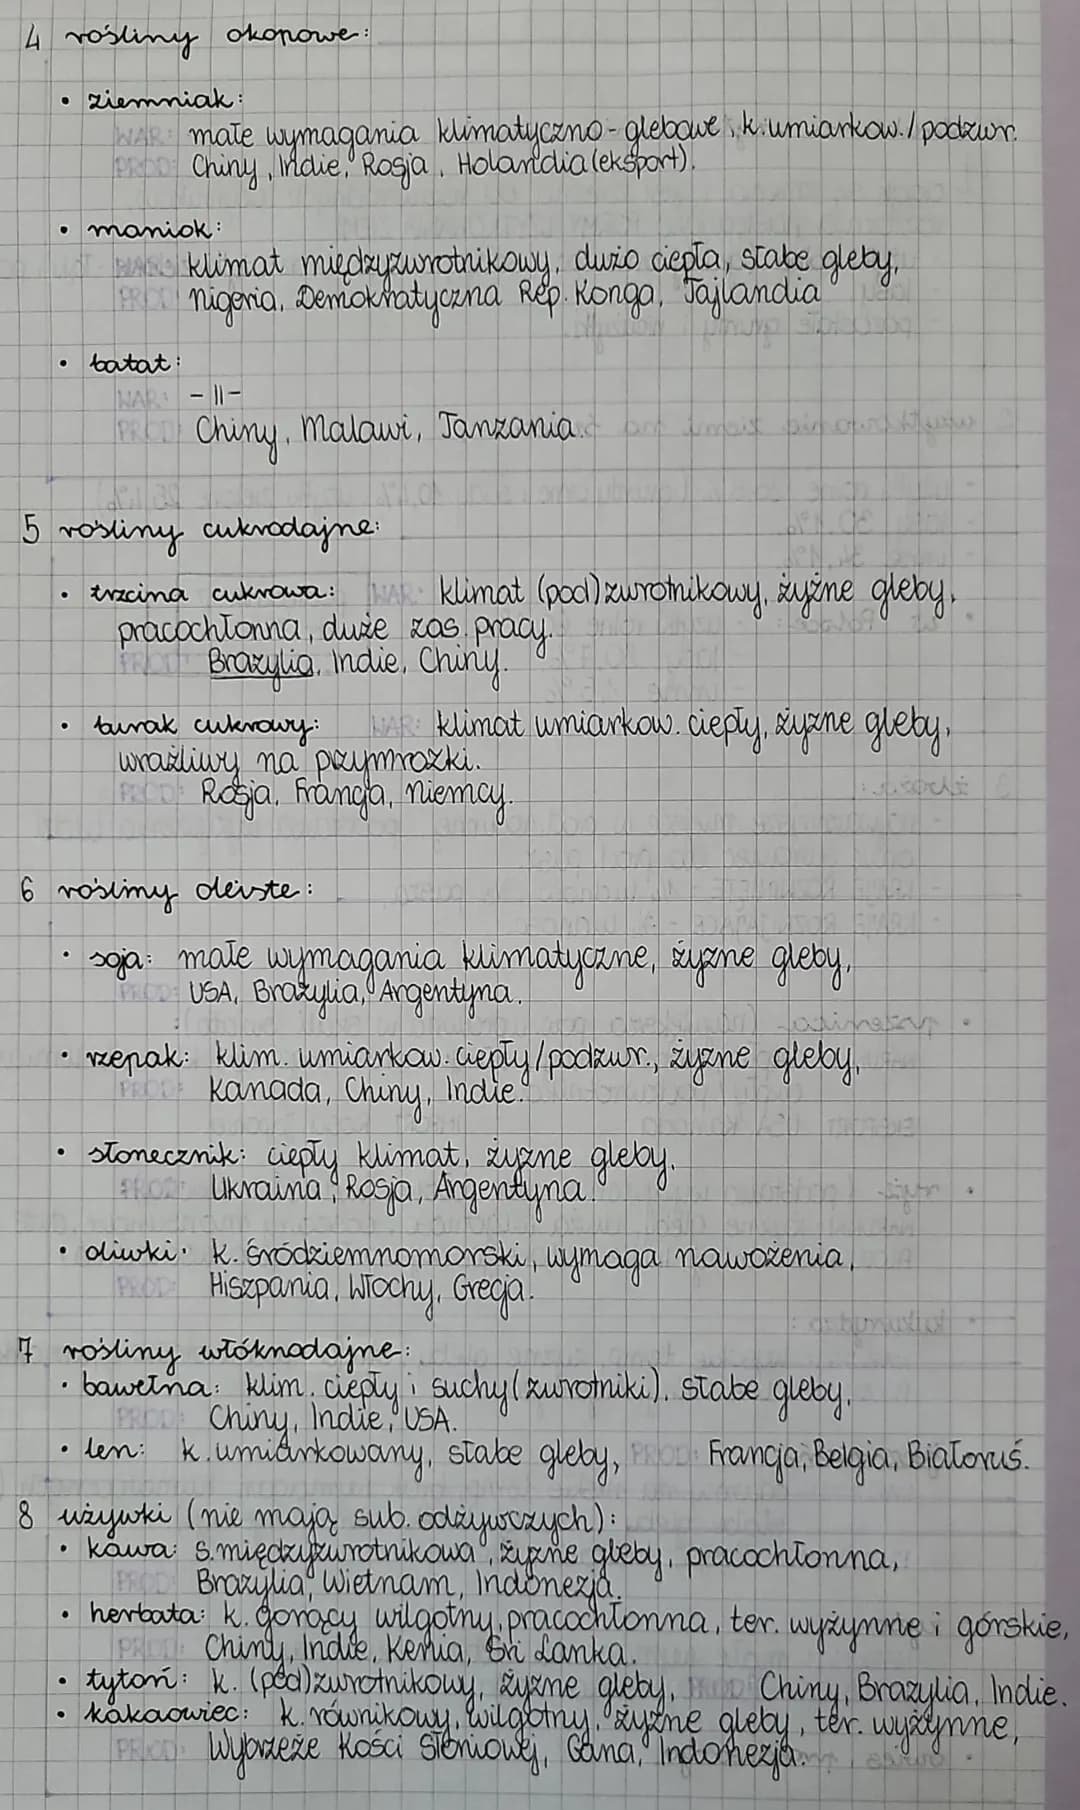 4 rośliny okopowe:
• ziemniak:
WAR: małe wymagania klimatyczno-glebowe, k.umiarkow./podzwr.
PROD: Chiny, Indie, Rosja, Holandia (eksport).
• maniok:
WAR: klimat międzyzwrotnikowy, dużo ciepła, słabe gleby,
PROD: Nigeria, Demokratyczna Rep. Konga, Tajlandia
• batat:
WAR: -||-
PROD: Chiny, Malawi, Tanzania.
5 rośliny cukrodajne:
• trzcina cukrowa: WAR: klimat (pod)zwrotnikowy, żyżne gleby,
pracochłonna, duże zas. pracy.
PROD: Brazylia, Indie, Chiny.
• burak cukrowy: WAR: klimat umiarkow. ciepły, żyzne gleby,
wrażliwy na przymrozki.
PROD: Rosja, Francja, Niemcy.
6 rośliny oleiste:
• soja: małe wymagania klimatyczne, żyzne gleby,
PROD: USA, Brazylia, Argentyna.
• rzepak: klim. umiarkow. ciepły/podzwr., żyzne gleby,
PROD: Kanada, Chiny, Indie.
• słonecznik: ciepły klimat, żyzne gleby,
PROD: Ukraina, Rosja, Argentyna.
• oliwki: k. śródziemnomorski, wymaga nawożenia,
PROD: Hiszpania, Włochy, Grecja.
7 rośliny włóknodajne:
• bawełna: klim. ciepły i suchy (zwrotniki), słabe gleby,
PROD: Chiny, Indie, USA.
• len: k.umiarkowany, słabe gleby, PROD: Francja, Belgia, Białoruś.
8 używki (nie mają sub. odżywczych):
• kawa: s.międzyzwrotnikowa, żyzne gleby, pracochłonna,
PROD: Brazylia, Wietnam, Indonezja.
• herbata: k. gorący wilgotny, pracochłonna, ter. wyżynne i górskie,
PROD: Chiny, Indie, Kenia, Sri Lanka.
• tytoń: k. (pod)zwrotnikowy, żyzne gleby, PROD: Chiny, Brazylia, Indie.
• kakaowiec: k. równikowy, wilgotny, żyzne gleby, ter. wyżynne,
PROD: Wybrzeże Kości Słoniowej, Gana, Indonezja.